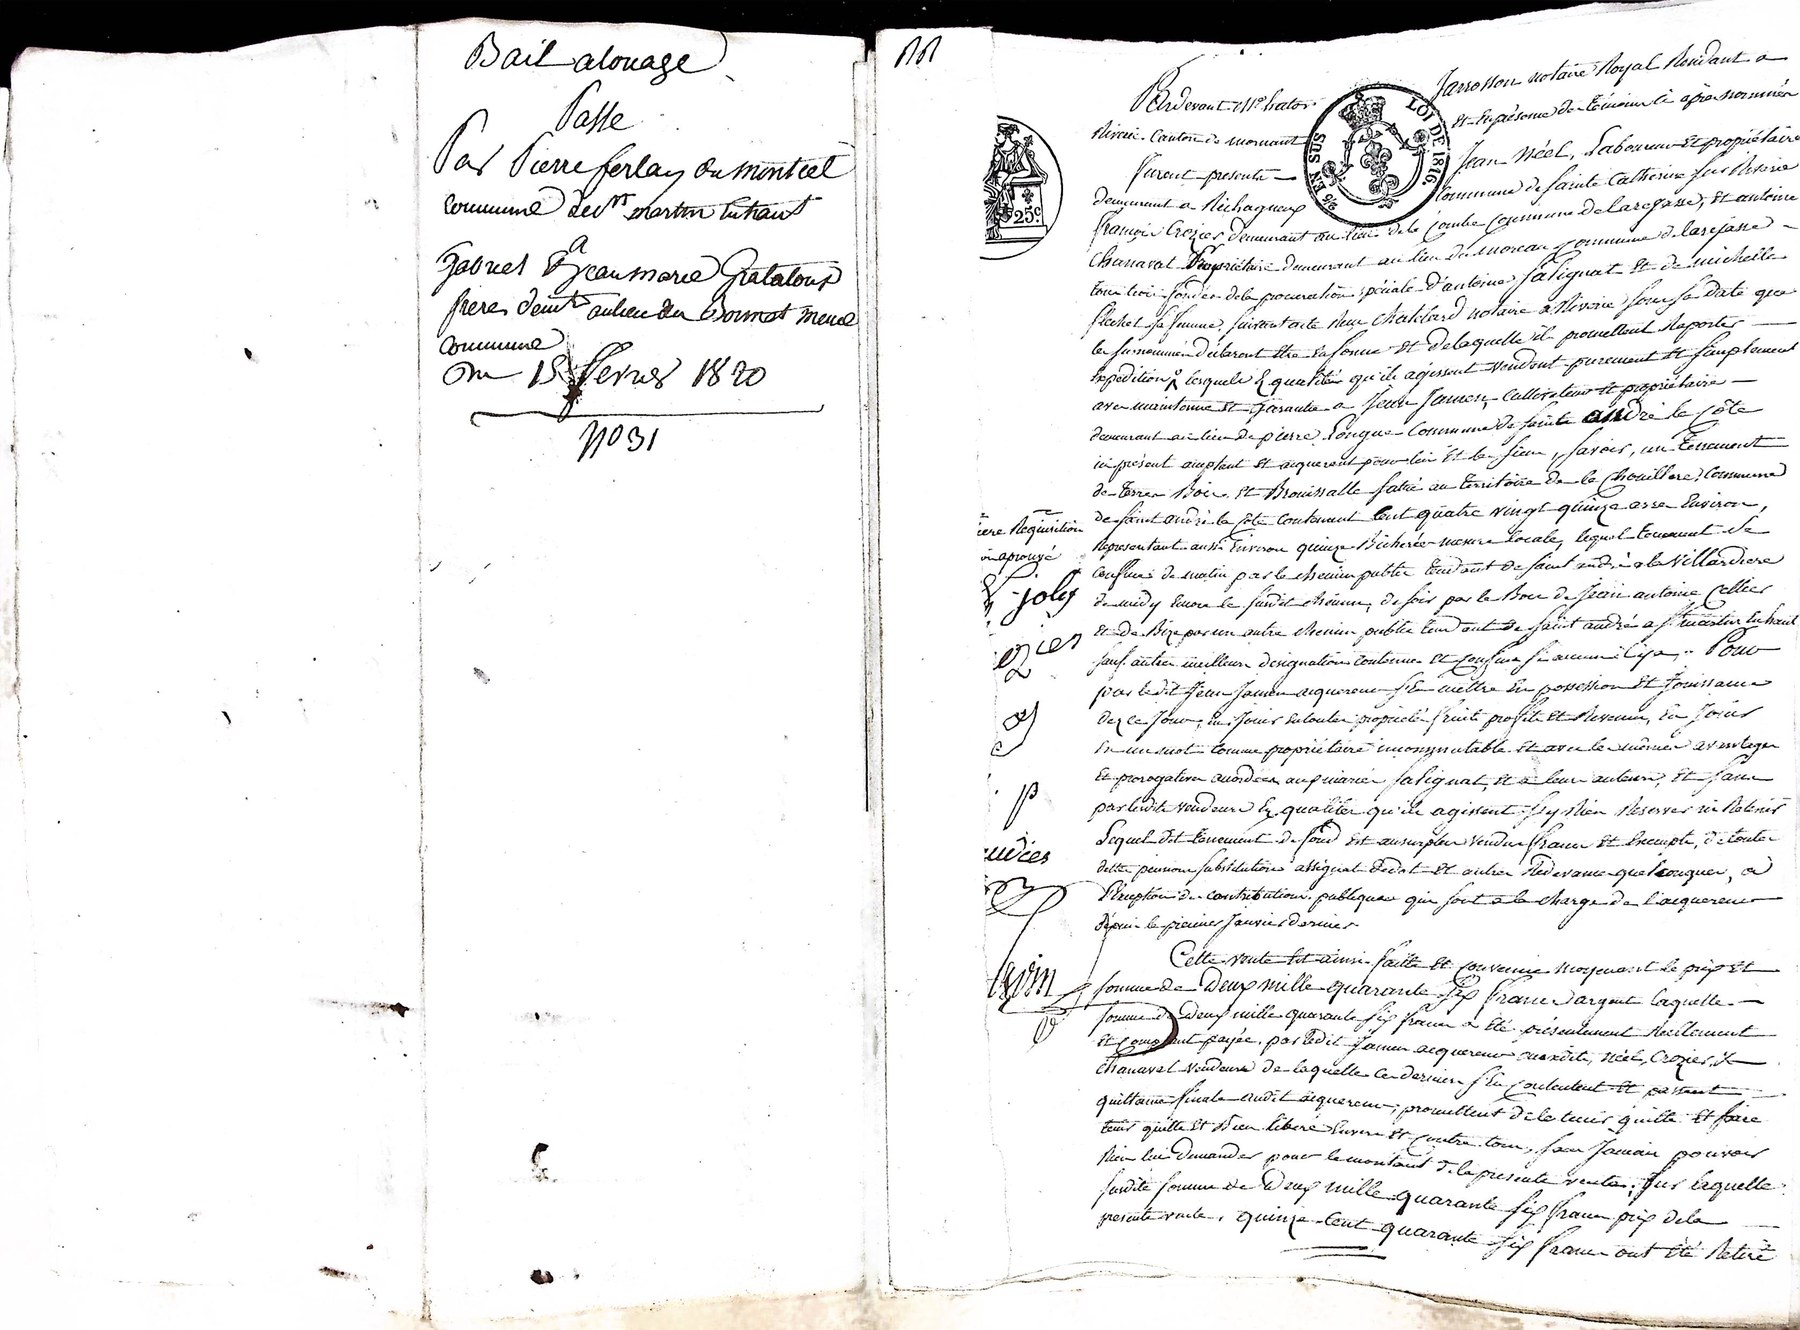 Bail alouage
Passe
Par Pierre ferlay du montcel
commune de st martin en haut
a
Gabriel & jean marie Grataloup
freres demts au lieu du Bonnet meme
commune
Du 15 fevrier 1820
No 31
LOI DE 1816.
EN SUS
25c
Pardevant Me
Jarrosson notaire Royal Residant a
Riverie canton de mornant
et En présence de témoins ci après nommés
Furent présents
Jean Néel, Laboureur et propriétaire
demeurant a
commune de Sainte Catherine sur Riverie
françois Crozier demeurant au lieu de la Combe Commune de Larajasse, et antoine
Chanavat Propriétaire demeurant au lieu du moreau Commune de larajasse
tous trois fondés de la procuration spéciale d'antoine Salignat et de michelle
sa femme, suivant acte Reçu notaire a Riverie sous sa date que
les surnommés déclarent être En forme et de laquelle ils promettent Rapporter
Expédition, lesquels Es qualités qu'ils agissent vendent purement et simplement
avec maintenue et garantie a Jean Jamen, cultivateur et propriétaire
demeurant au lieu de pierre Longue Commune de Sainte andré la Côte
ici présent acceptant et acquerant pour lui et les siens, savoir, un tenement
de terre Bois et Brouissaille situé au territoire de la Chouillere, Commune
de saint andré la Côte contenant cent quatre vingt quinze ares Environ,
Representant aussi Environ quinze Bicherées mesure locale, lequel tenement se
confine de matin par le chemin public tendant de saint andré a la Villardiere
de midy Encore le susdit chemin, de soir par le Bois de Jean antoine Cellier
et de Bize par un autre chemin public tendant de saint andré a St martin En haut
sauf autres meilleurs designations contenues et confins si aucuns il y a, Pour
par ledit Jean Jamen acquereur s'En mettre En possession et Jouissance
dez ce Jour, En Jouir En toute propriété fruits profits et Revenus, En Jouir
En un mot comme propriétaire incommutable et avec les mêmes avantages
Et prerogatives accordées aux mariés Salignat, et a leurs auteurs, et sans
par lesdits vendeurs Es qualités qu'ils agissent s'y Rien Reserver ni Retenir
Lequel dit tenement de fond Est au surplus vendu franc et Exempt, de toutes
dettes pensions substitutions assignat de dot et autres Redevances quelconques, a
l'Exception des contributions publiques qui sont a la charge de l'acquereur
depuis le premier Janvier dernier
Cette vente Est ainsi faitte et convenue moyenant le prix et
somme de Deux mille quarante six francs d'argent laquelle
somme de Deux mille quarante six francs a été présentement Réellement
et comptant payée, par ledit Jamen acquereur auxdits, Néel, Crozier, &
Chanavat vendeurs de laquelle ces derniers s'En contentent et passent
quittance finale audit acquereur, promettent de le tenir quitte et faire
tenir quitte et Bien libéré Envers et contre tous, sans Jamais pouvoir
Rien lui demander pour le montant de la presente vente, sur laquelle
susdite somme de Deux mille quarante six francs prix de la
presente vente, quinze cent quarante six francs ont été Retiré
Requisition
aprouvé
joly